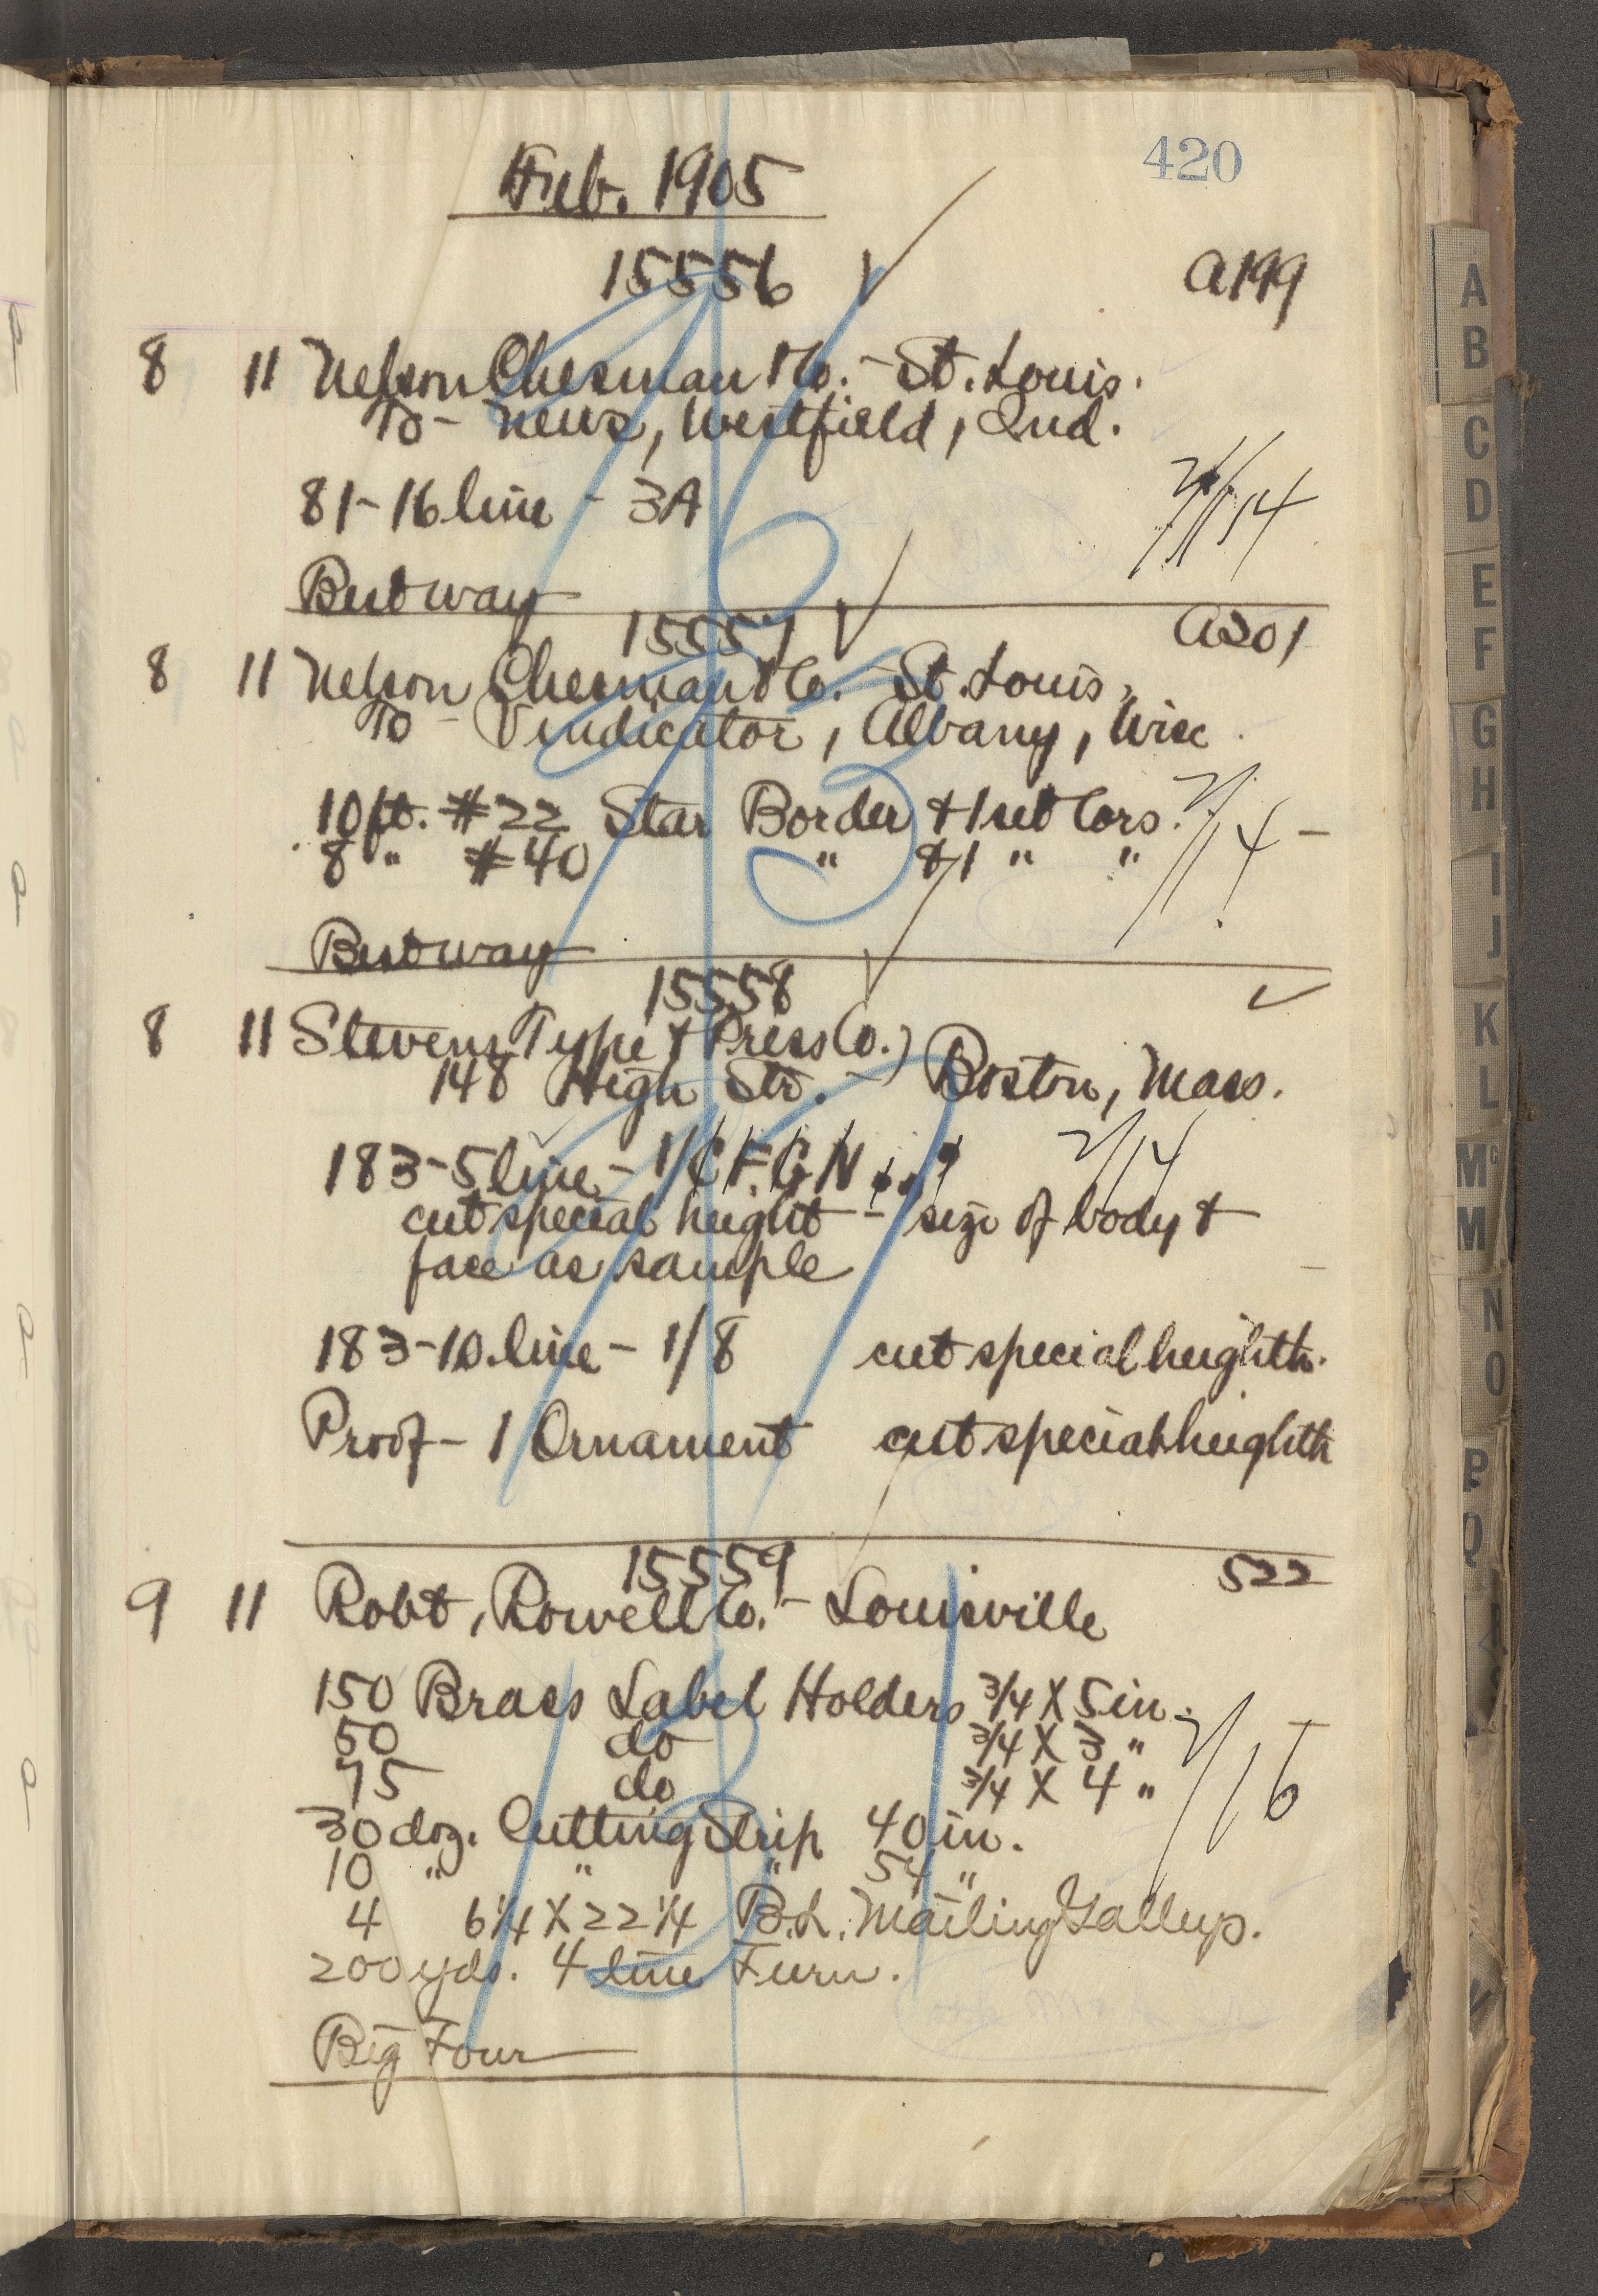 420
Feb. 1905
15556 a199
8 11 Nelson Chesman & Co. - St. Louis.
To - News, Westfield, Ind.
81 - 16 line - 3A
2/14
Best way
15557 a201
8 11 Nelson Chesman & Co. - St. Louis,
To - Vindicator, Albany, Wisc.
10 ft. #22 Star Border & 1 set Cors.
8 " #40 " & 1 " "
2/14 -
Best way
15558 ✓
8 11 Stevens Type & Press Co. )
148 High Str. - ) Boston, Mass.
183 - 5 line - 1/C F. G N
2/14
cut special height - size of body &
face as sample
183 - 10 line - 1/8 cut special heighth.
Proof - 1 Ornament cut special heighth
15559 522
9 11 Robt. Rowell Co. - Louisville
150 Brass Label Holders 3/4 X 5 in.
50 do 3/4 X 3 "
75 do 3/4 X 4 "
2/16
30 doz. Cutting Strip 40 in.
10 " " " 54 "
4 6 1/4 X 22 1/4 B. L. Mailing Galleys.
200 yds. 4 line Furn.
Big Four
A
B
C
D
E
F
G
H
I
J
K
L
Mc
M
N
O
P
Q